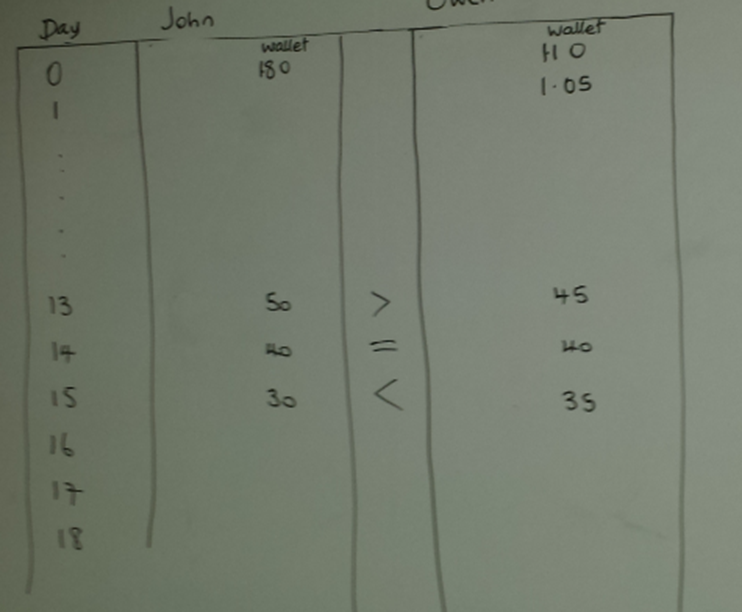 Day John Owen
wallet wallet
0 180 110
1 1.05
.
.
.
.
.
13 50 > 45
14 40 = 40
15 30 < 35
16
17
18